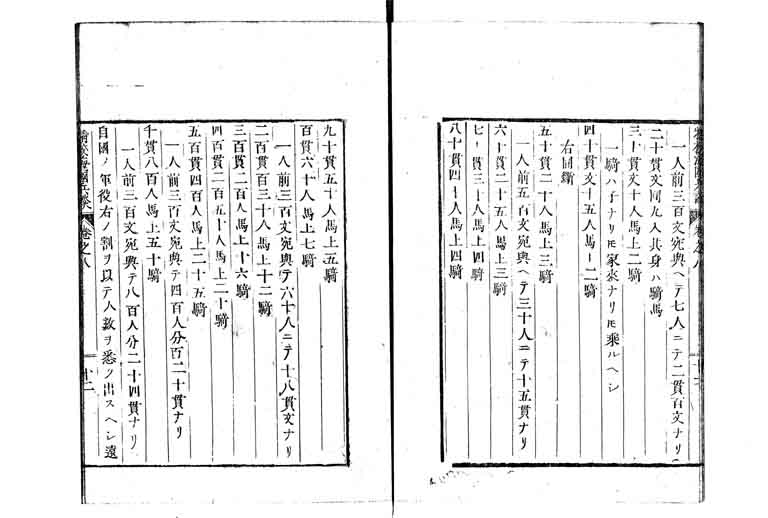 一人前三百文宛與ヘテ七人ニテ二貫百文ナリ
二十貫文同九人其身ハ騎馬
三十貫文十人馬上二騎
一騎ハ子ナリモ家來ナリモ乘ルヘシ
四十貫文十五人馬上二騎
右同斷
五十貫二十人馬上三騎
一人前五百文宛與ヘテ三十人ニテ十五貫ナリ
六十貫二十五人馬上三騎
七十貫三十人馬上四騎
八十貫四十人馬上四騎
卷之八
九十貫五十人馬上五騎
百貫六十人馬上七騎
一人前三百文宛與テ六十人ニテ十八貫文ナリ
二百貫百三十人馬上十二騎
三百貫二百人馬上十六騎
四百貫二百五十人馬上二十騎
五百貫四百人馬上二十五騎
一人前三百文宛與テ四百人分百二十貫ナリ
千貫八百人馬上五十騎
一人前三百文宛與テ八百人分二十四貫ナリ
自國ノ軍役右ノ割ヲ以テ人數ヲ悉ク出スヘシ遠
卷之八
十二